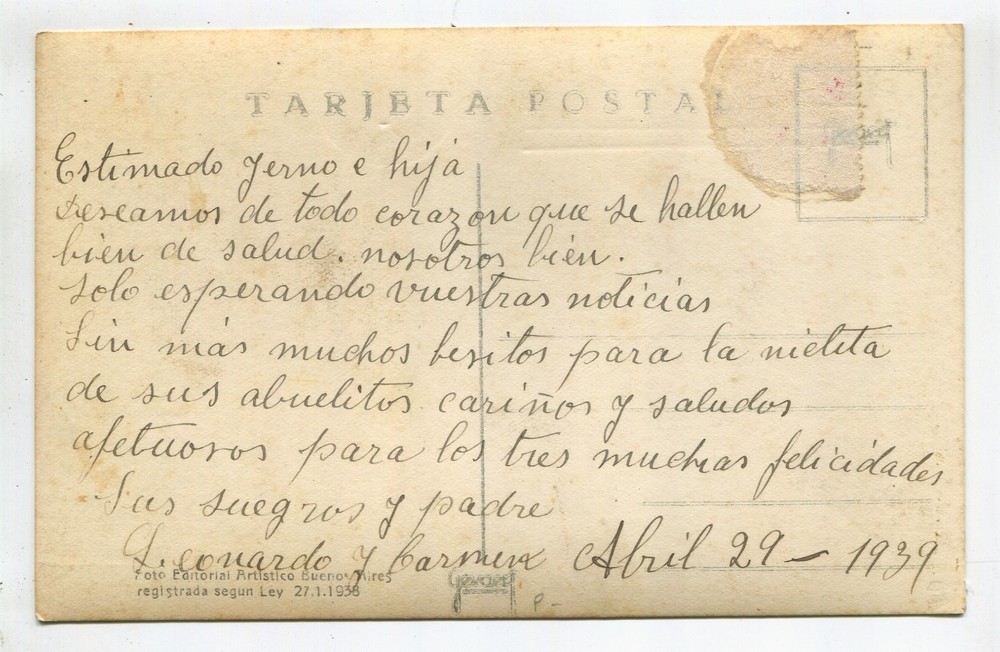 TARJETA POSTAL
Estimado Jerno e hija
Deseamos de todo corazon que se hallen
bien de salud. nosotros bien.
Solo esperando vuestras noticias
Sin más muchos besitos para la nietita
de sus abuelitos cariños y saludos
afetuosos para los tres muchas felicidades
Sus suegros y padre
Leonardo y Carmen Abril 29 - 1939
Foto Editorial Artistico Buenos Aires
registrada segun Ley 27.1.1938
P-